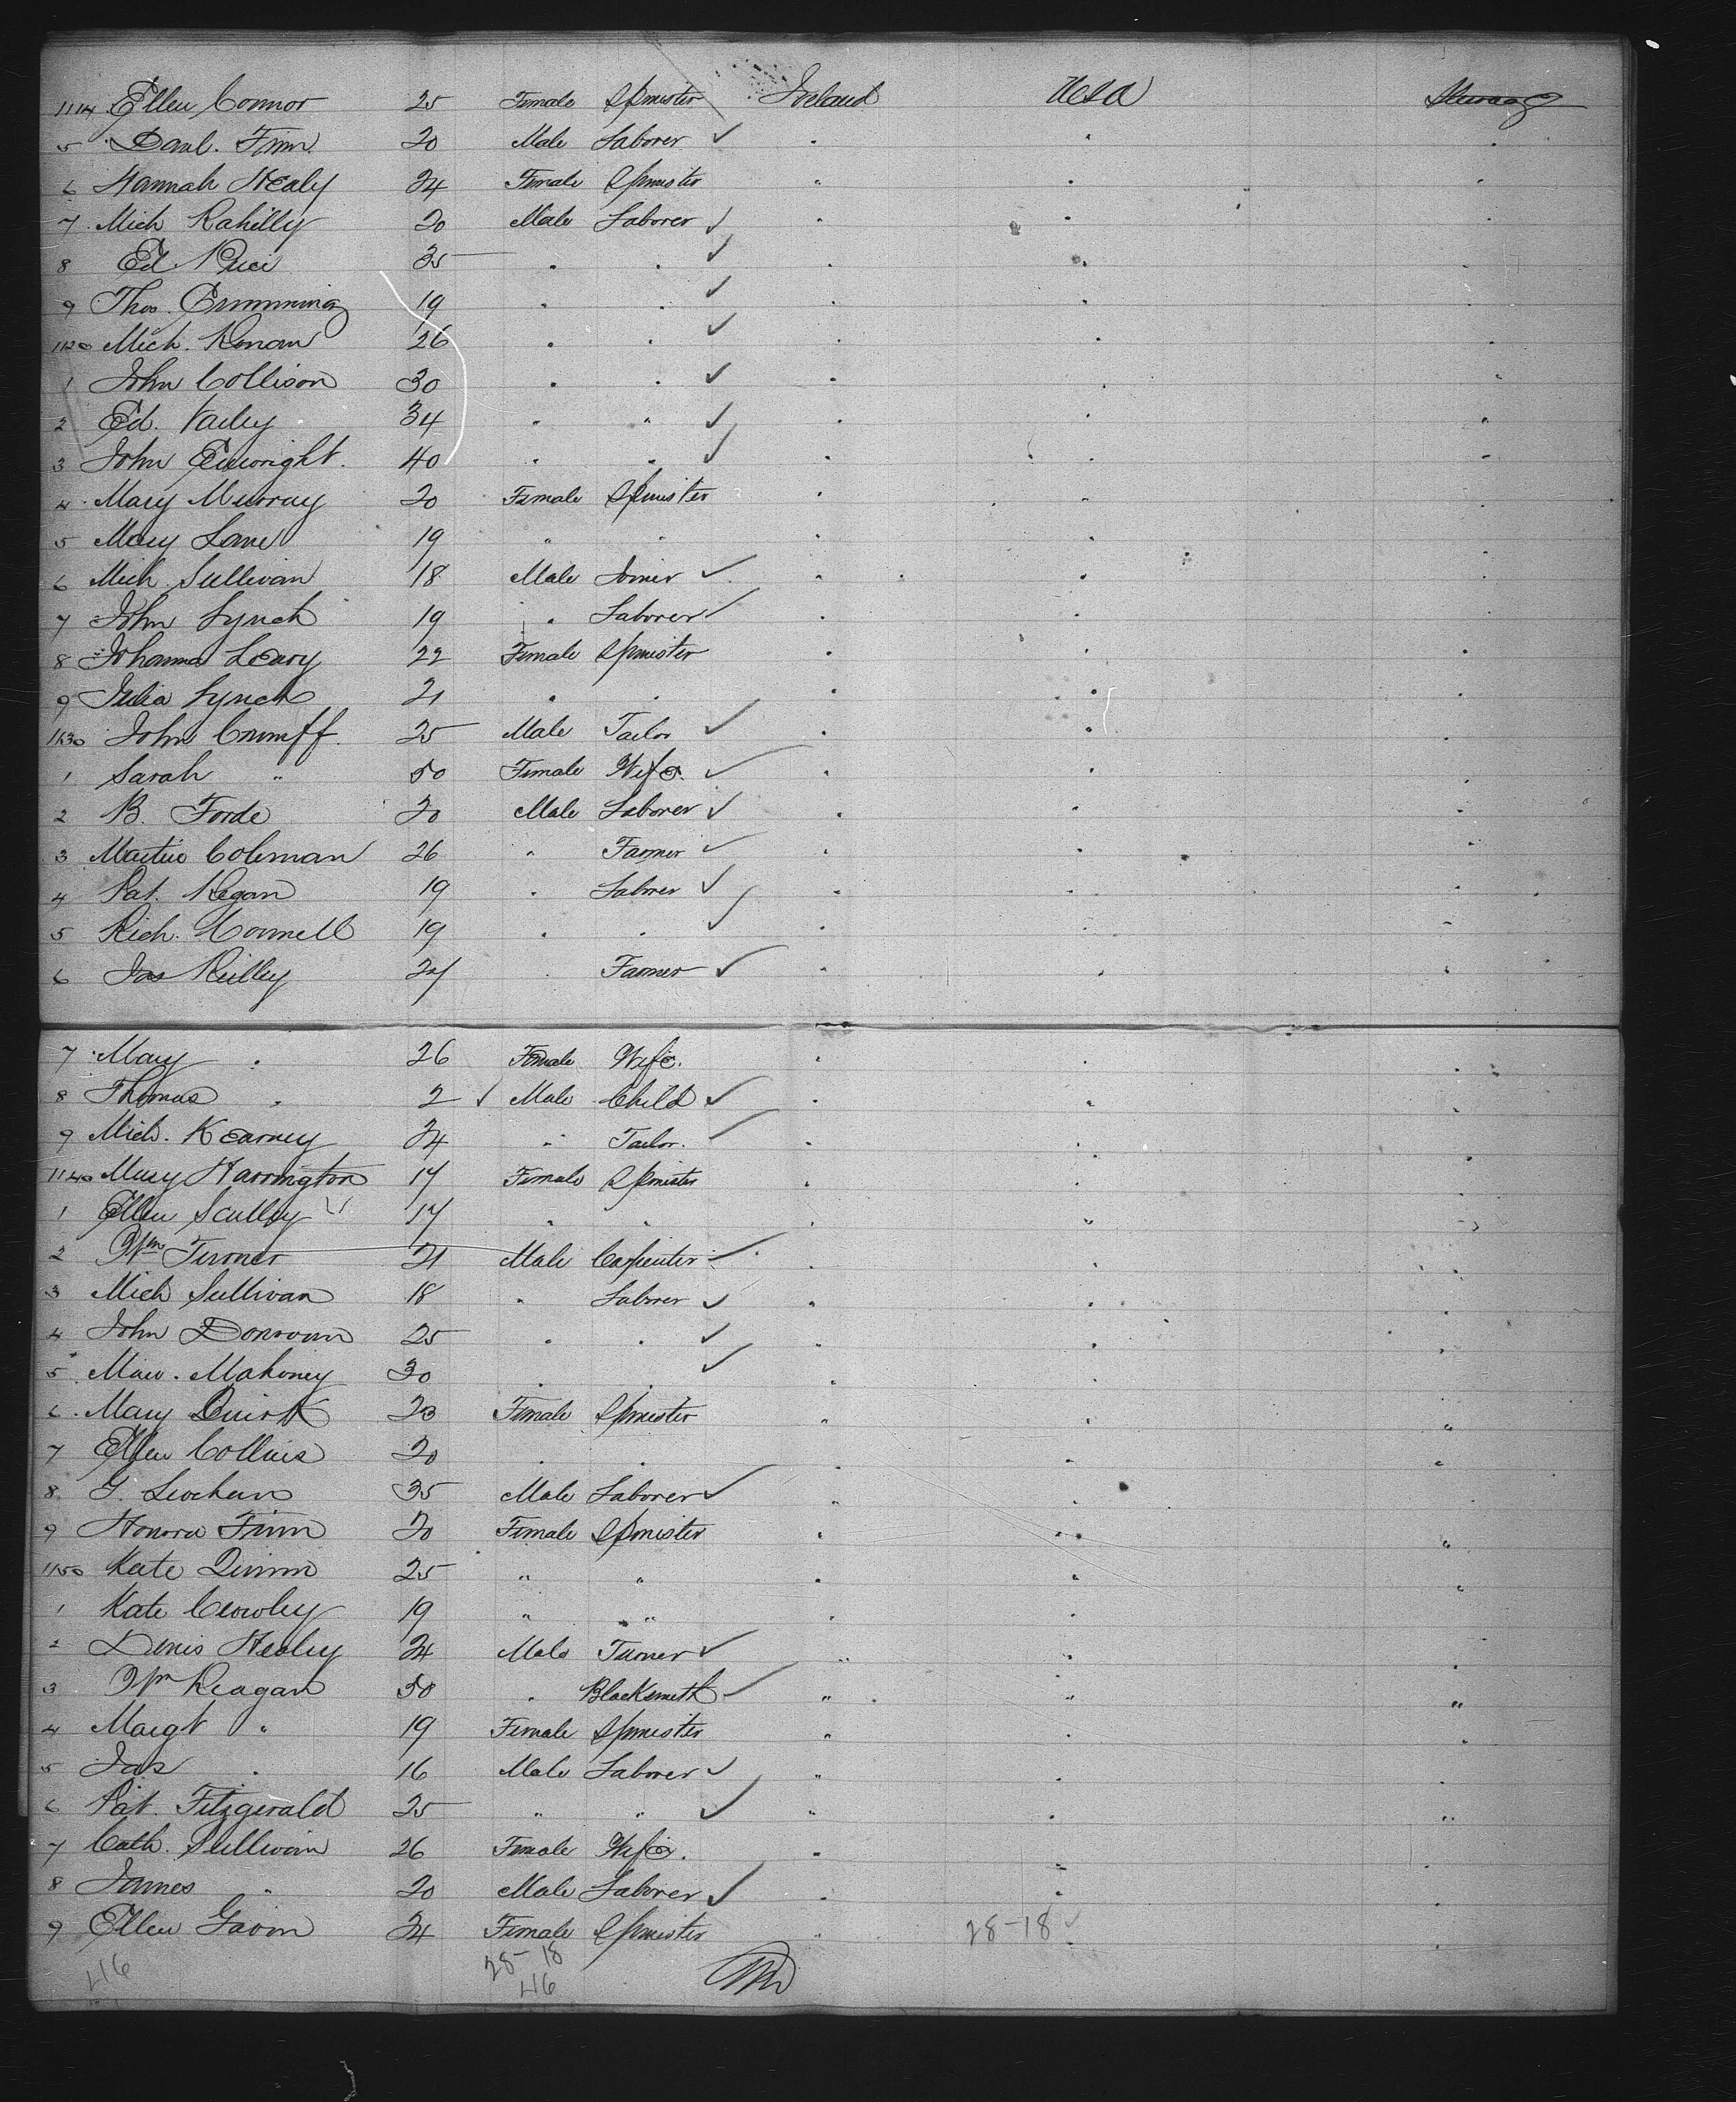 1114 Ellen Connor 25 Female Spinster Ireland USA Steerage
5 Danl. Finn 20 Male Laborer ✓ " " "
6 Hannah Healy 24 Female Spinster " " "
7 Mich Rahilly 20 Male Laborer ✓ " " "
8 Ed. Price 35 " " ✓ " " "
9 Thos. Crimming 19 " " ✓ " " "
1120 Mich. Ronan 26 " " ✓ " " "
1 John Collison 30 " " ✓ " " "
2 Ed. 34 " " ✓ " " "
3 John Enwright. 40 " " ✓ " " "
4 Mary Murray 20 Female Spinster " " "
5 Mary Lane 19 " " " " "
6 Mich Sullivan 18 Male Joiner ✓ " " "
7 John Lynch 19 " Laborer ✓ " " "
8 Johanna Leary 22 Female Spinster " " "
9 Julia Lynch 21 " " " " "
1130 John 25 Male Tailor ✓ " " "
1 Sarah " Female Wife. ✓ " " "
2 B. Forde 20 Male Laborer ✓ " " "
3 Martin Coleman 26 " Farmer ✓ " " "
4 Pat. Regan 19 " Laborer ✓ " " "
5 Rich. Connell 19 " " ✓ " " "
6 Jas Reilley " Farmer ✓ " " "
7 Mary " 26 Female Wife. " " "
8 Thomas " 2 ✓ Male Child ✓ " " "
9 Mich. Kearney 24 " Tailor. ✓ " " "
1140 Mary Harrington 17 Female Spinster " " "
1 Ellen Sculley 17 " " " " "
2 Wm Turner 21 Male Carpenter ✓ " " "
3 Mich Sullivan 18 " Laborer ✓ " " "
4 John Donovan 25 " " ✓ " " "
5 Mahoney 30 " " ✓ " " "
6 Mary Quirk 23 Female Spinster " " "
7 Ellen Collins 20 " " " " "
8 G. 35 Male Laborer ✓ " " "
9 Honora Finn 20 Female Spinster " " "
1150 Kate Quinn 25 " " " " "
1 Kate Crowley 19 " " " " "
2 Denis Healey 24 Male Turner ✓ " " "
3 Wm Reagan 50 " Blacksmith ✓ " " "
4 Margt " 19 Female Spinster " " "
5 Jas " 16 Male Laborer ✓ " " "
6 Pat. Fitzgerald 25 " " ✓ " " "
7 Cath. Sullivan 26 Female Wife. " " "
8 James " 20 Male Laborer ✓ " " "
9 Ellen Gavin 24 Female Spinster " 28-18 ✓ " "
46 28-18
46